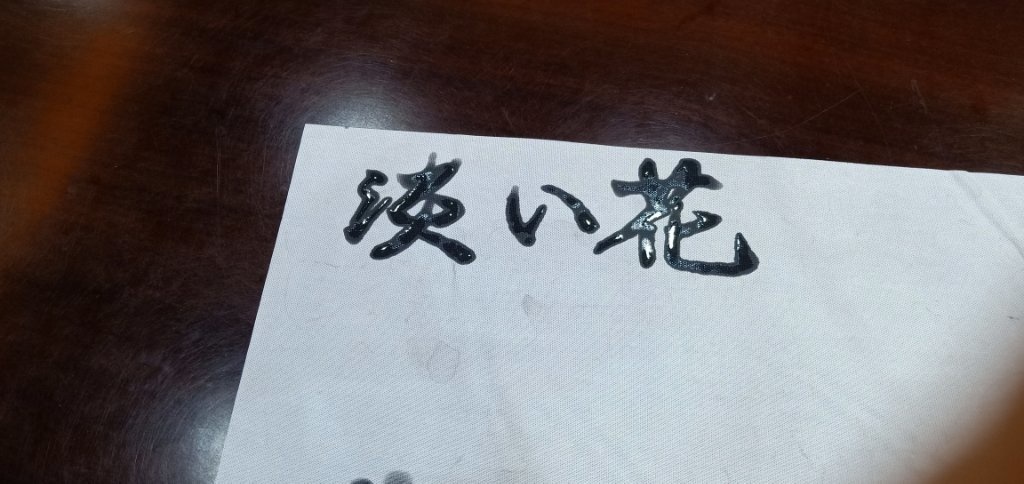 淡い花